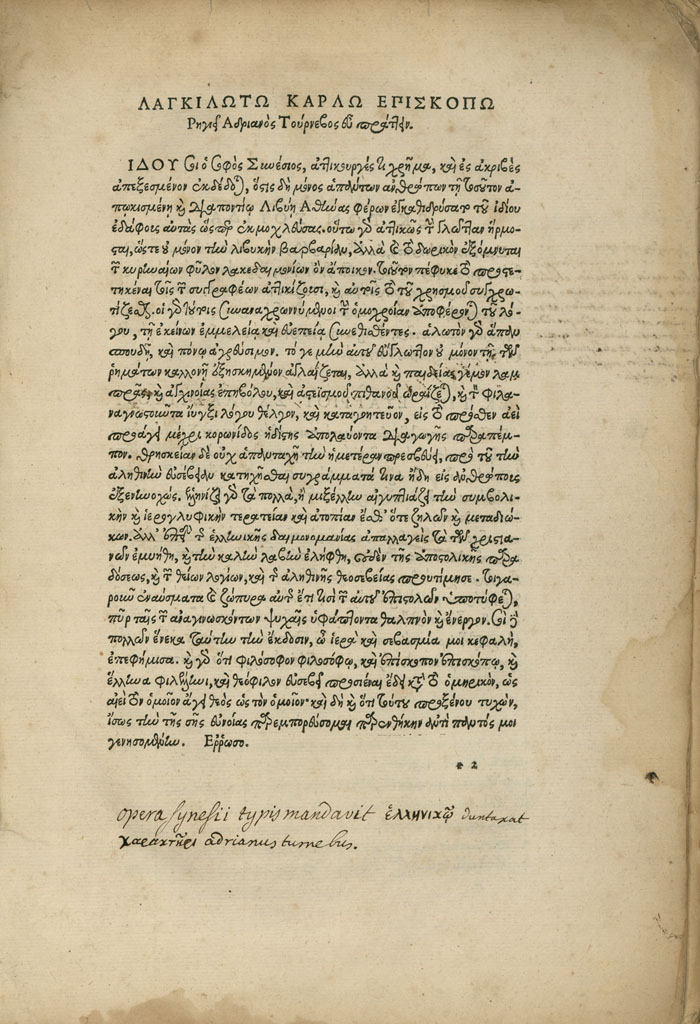 ΛΑΓΚΙΛΩΤΩ ΚΑΡΛΩ ΕΠΙΣΚΟΠΩ
Ῥηγίῳ Ἀδριανὸς Τούρνεβος εὖ πράττειν.
ΙΔΟΥ σοι ὁ σοφὸς Συνέσιος, ἀττικουργὲς χρῆμα, καὶ ἐς ἀκριβὲς
ἀπεξεσμένον ἐκδέδοται, ὅστις δὴ μόνος ἁπάντων ἀνθρώπων τῇ τοσοῦτον ἀ-
πῳκισμένῃ καὶ διαποντίῳ Λιβύῃ Ἀθήνας φέρων ἐγκαθιδρύσατο τοῦ ἰδίου
ἐδάφους αὐτὰς ὥσπερ ἐκμοχλεύσας. οὕτω γὰρ ἀττικῶς τὴν γλῶτταν ἥρμο-
σται, ὥστε οὐ μόνον τὴν λιβυκὴν βαρβαρίδα, ἀλλὰ καὶ τὸ δωρικὸν ἐξόμνυται
τῶν κυρηναίων φῦλον λακεδαιμονίων ὂν ἄποικον. τοιοῦτον πέφυκε τὸ προστε-
τηκέναι τοῖς τῶν συγγραφέων ἀττικίζουσι, καὶ αὐτοῖς τοῦ χρησμοῦ συγχρω-
τίζεσθαι. οἱ γὰρ τούτοις συναναχρωννύμενοι τὴν ὁμοχροίαν ἀποφέρονται τοῦ λό-
γου, τῇ ἐκείνων ἐμμελείᾳ καὶ εὐεπείᾳ συνεθισθέντες. ἁλωτὸν γὰρ ἅπαν
σπουδῇ, καὶ πόνῳ τό γε μὴν αὐτοῦ εὔγλωττον οὐ μόνον τῇ τῶν
ῥημάτων καλλονῇ ἐξησκημένον ἀγλαΐζεται, ἀλλὰ καὶ παιδείας γέμον λαμ
πρᾶς, καὶ ἀγχινοίας ἐπηβόλου, καὶ ἀστεϊσμοῦ πιθανοῦ ὡραΐζεται, καὶ τὸν φιλα-
ναγνωστοῦντα ἴυγξι λόγου θέλγον, καὶ καταγοητεῦον, εἰς τὸ πρόσθεν ἀεὶ
προάγει μέχρι κορωνίδος ἡδίστης ἀπολαύοντα διαγωγῆς παραπέμ-
πον. θρησκείαν δὲ οὐχ ἁπανταχῆ τὴν ἡμετέραν πρεσβεύει, πρὸ τοῦ τὴν
ἀληθινὴν εὐσέβειαν κατηχηθῆναι συγγράμματά τινα ἤδη εἰς ἀνθρώπους
ἐξενηνοχώς. ἑλληνίζει γὰρ τὰ πολλὰ, ἢ μιξέλλην αἰγυπτιάζει τὴν συμβολι-
κὴν καὶ ἱερογλυφικὴν τερατείαν καὶ ἀτοπίαν ἔσθ' ὅτε ζηλῶν καὶ μεταδιώ-
κων. ἀλλ' ἐπεὶ τῆς ἑλληνικῆς δαιμονομανίας ἀπαλλαγεὶς τὰ τῶν χριστια-
νῶν ἐμυήθη, καὶ τὴν καλὴν λαβὴν ἐλήφθη, οὐδὲν τῆς ἀποστολικῆς παρα
δόσεως, καὶ τῶν θείων λογίων, καὶ τῆς ἀληθινῆς θεοσεβείας προυτίμησε. τοιγα-
ροῦν ἐναύσματα καὶ ζώπυρα αὐτῆς ἔτι αὐτοῦ ἐπιστολῶν ὑποτύφεται,
πῦρ ταῖς τῶν ἀναγινωσκόντων ψυχαῖς ὑφάπτοντα θαλπνὸν καὶ ἔνεργον. σοὶ δὲ
πολλῶν ἕνεκα ταύτην τὴν ἔκδοσιν, ὦ ἱερὰ καὶ σεβασμία μοι κεφαλὴ,
ἐπεφήμισα. καὶ γὰρ ὅτι φιλόσοφον φιλοσόφῳ, καὶ ἐπίσκοπον ἐπισκόπῳ, καὶ
ἕλληνα φιλέλληνι, καὶ θεόφιλον εὐσεβεῖ προσιέναι ἔδει κατὰ τὸ ὁμηρικὸν, ὡς
αἰεὶ τὸν ὁμοῖον ἄγει θεὸς ὡς τὸν ὁμοῖον· καὶ δὴ καὶ ὅτι τούτου προξένου τυχὼν,
ἴσως τὴν τῆς σῆς εὐνοίας παρεμπορεύσομαι προσθήκην ἀντὶ παντός μοι
γενησομένην. Ἔρρωσο.
* 2
opera synesii typis mandavit ἑλληνικῷ duntaxat
χαρακτῆρι adrianus turnebus.